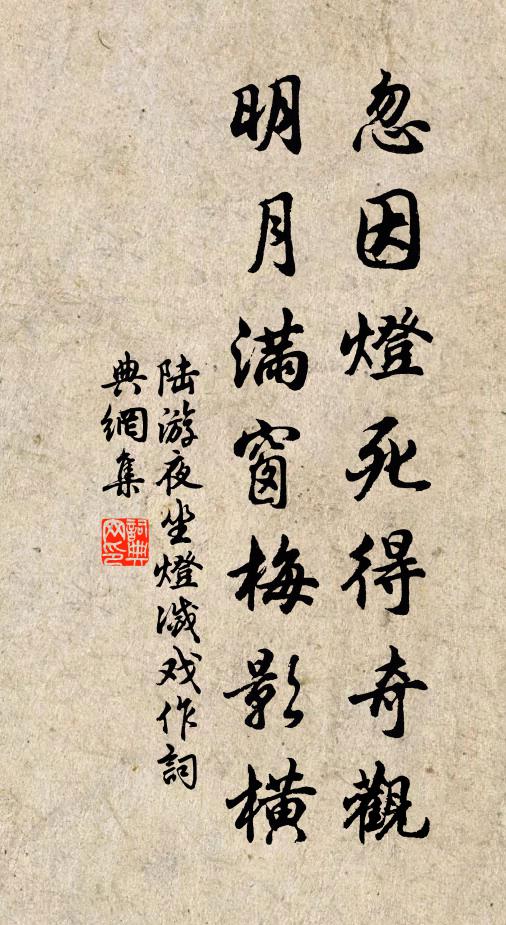 忽因燈死得奇觀
明月滿窗梅影橫
陆游夜坐燈滅戏作詞
典網集
詞典网印